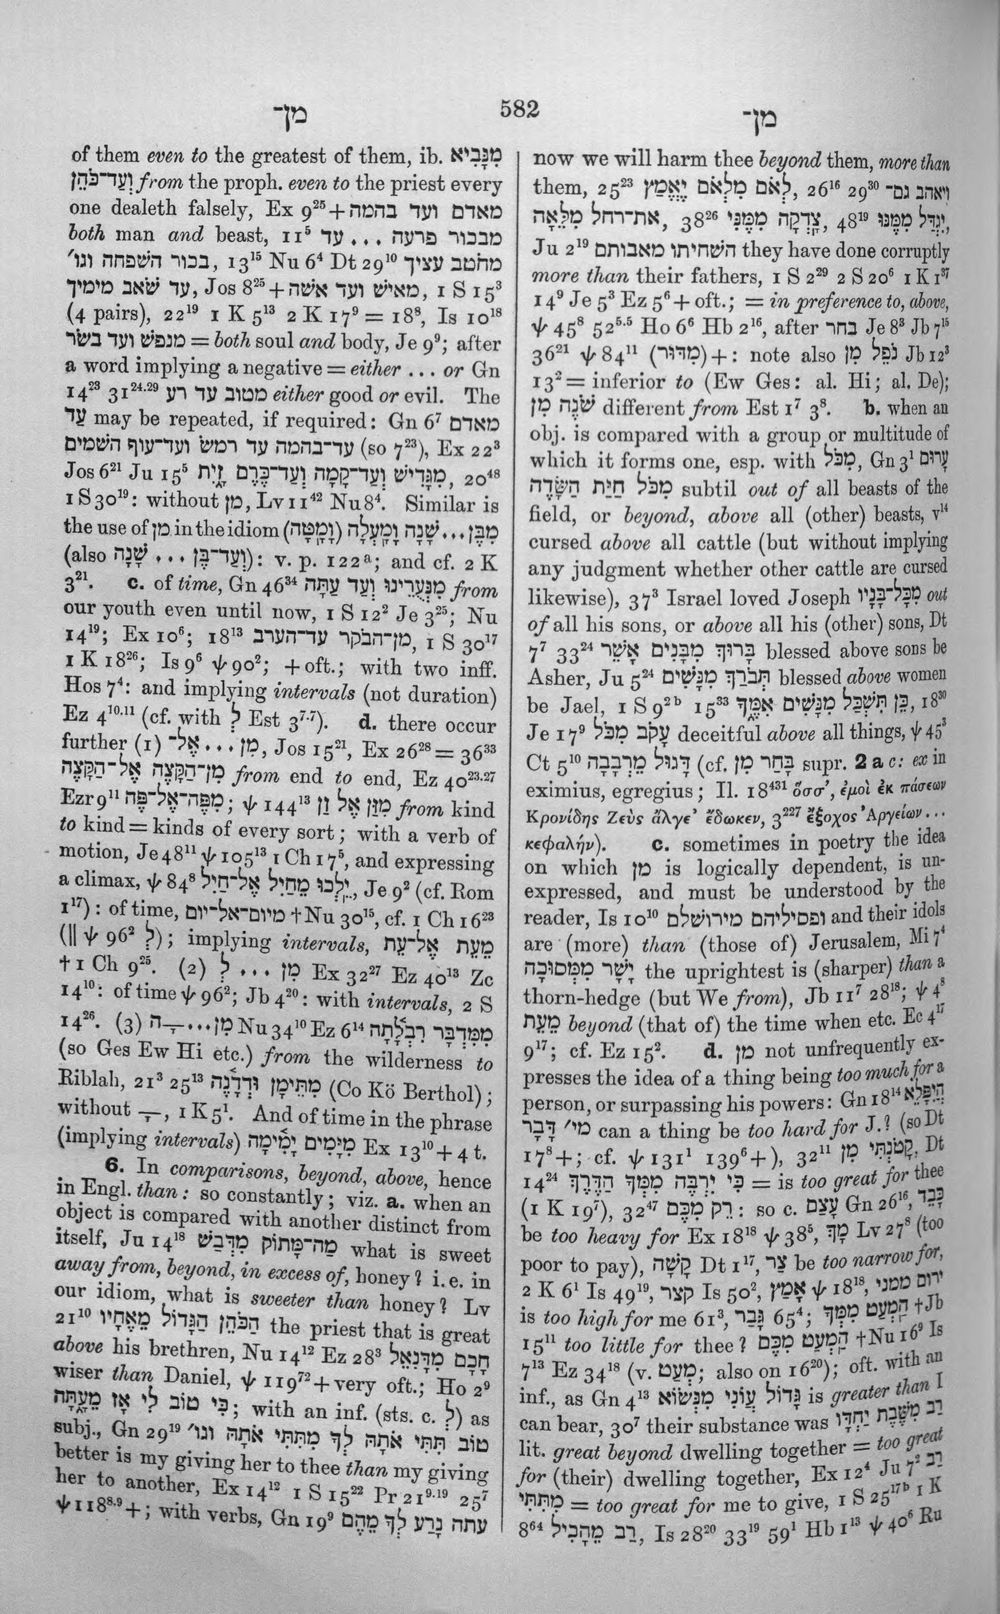 מִן־ 582 מִן־
of them even to the greatest of them, ib. מִנָּבִיא
וְעַד־כֹּהֵן from the proph. even to the priest every
one dealeth falsely, Ex 9²⁵ + מאדם ועד בהמה
both man and beast, 11⁵ מבכור פרעה ... עד
בכור השפחה וגו׳, 13¹⁵ Nu 6⁴ Dt 29¹⁰ מחטב עציך
עד שֹׁאב מימיך, Jos 8²⁵ + מאיש ועד אשה, 1 S 15³
(4 pairs), 22¹⁹ 1 K 5¹³ 2 K 17⁹ = 18⁸, Is 10¹⁸
מנפש ועד בשר = both soul and body, Je 9⁹; after
a word implying a negative = either ... or Gn
14²³ 31²⁴·²⁹ מטוב עד רע either good or evil. The
עַד may be repeated, if required: Gn 6⁷ מאדם
עד־בהמה עד רמש ועד־עוף השמים (so 7²³), Ex 22³
Jos 6²¹ Ju 15⁵ מִגָּדִישׁ וְעַד־קָמָה וְעַד־כֶּרֶם זָיִת, 20⁴⁸
1 S 30¹⁹: without מִן, Lv 11⁴² Nu 8⁴. Similar is
the use of מִן in the idiom מִבֶּן ... שָׁנָה וָמַעְלָה (וָמַטָּה)
(also וְעַד־בֶּן ... שָׁנָה): v. p. 122ᵃ; and cf. 2 K
3²¹. c. of time, Gn 46³⁴ מִנְּעֻרֵינוּ וְעַד עַתָּה from
our youth even until now, 1 S 12² Je 3²⁵; Nu
14¹⁹; Ex 10⁶; 18¹³ מן־הבקר עד־הערב, 1 S 30¹⁷
1 K 18²⁶; Is 9⁶ ψ 90²; + oft.; with two inff.
Hos 7⁴: and implying intervals (not duration)
Ez 4¹⁰·¹¹ (cf. with לְ Est 3⁷·⁷). d. there occur
further (1) מִן ... אֶל־, Jos 15²¹, Ex 26²⁸ = 36³³
מִן־הַקָּצֶה אֶל־הַקָּצֶה from end to end, Ez 40²³·²⁷
Ezr 9¹¹ מִפֶּה־אֶל־פֶּה; ψ 144¹³ מִזַּן אֶל זַן from kind
to kind = kinds of every sort; with a verb of
motion, Je 48¹¹ ψ 105¹³ 1 Ch 17⁵, and expressing
a climax, ψ 84⁸ יֵלְכוּ מֵחַיִל אֶל־חָיִל, Je 9² (cf. Rom
1¹⁷): of time, מיום־אל־יום †Nu 30¹⁵, cf. 1 Ch 16²³
(‖ ψ 96² לְ); implying intervals, מֵעֵת אֶל־עֵת
†1 Ch 9²⁵. (2) מִן ... לְ Ex 32²⁷ Ez 40¹³ Zc
14¹⁰: of time ψ 96²; Jb 4²⁰: with intervals, 2 S
14²⁶. (3) מִן...־ָה Nu 34¹⁰ Ez 6¹⁴ מִמִּדְבַּר רִבְלָתָה
(so Ges Ew Hi etc.) from the wilderness to
Riblah, 21³ 25¹³ מִתֵּימָן וּדְדָנֶה (Co Kö Berthol);
without ־ָה, 1 K 5¹. And of time in the phrase
(implying intervals) מִיָּמִים יָמִימָה Ex 13¹⁰ + 4 t.
6. In comparisons, beyond, above, hence
in Engl. than: so constantly; viz. a. when an
object is compared with another distinct from
itself, Ju 14¹⁸ מַה־מָּתוֹק מִדְּבַשׁ what is sweet
away from, beyond, in excess of, honey? i.e. in
our idiom, what is sweeter than honey? Lv
21¹⁰ הַכֹּהֵן הַגָּדוֹל מֵאֶחָיו the priest that is great
above his brethren, Nu 14¹² Ez 28³ חָכָם מִדָּנִאֵל
wiser than Daniel, ψ 119⁷² + very oft.; Ho 2⁹
כִּי טוֹב לִי אָז מֵעָתָּה; with an inf. (sts. c. לְ) as
subj., Gn 29¹⁹ טוֹב תִּתִּי אֹתָהּ לָךְ מִתִּתִּי אֹתָהּ וגו׳
better is my giving her to thee than my giving
her to another, Ex 14¹² 1 S 15²² Pr 21⁹·¹⁹ 25⁷
ψ 118⁸·⁹ +; with verbs, Gn 19⁹ עתה נָרַע לְךָ מֵהֶם
now we will harm thee beyond them, more than
them, 25²³ לְאֹם מִלְאֹם יֶאֱמָץ, 26¹⁶ 29³⁰ ויאהב גם־
את־רחל מִלֵּאָה, 38²⁶ צָדְקָה מִמֶּנִּי, 48¹⁹ יִגְדַּל מִמֶּנּוּ,
Ju 2¹⁹ השחיתו מאבותם they have done corruptly
more than their fathers, 1 S 2²⁹ 2 S 20⁶ 1 K 1³⁷
14⁹ Je 5³ Ez 5⁶ + oft.; = in preference to, above,
ψ 45⁸ 52⁵·⁵ Ho 6⁶ Hb 2¹⁶, after בחר Je 8³ Jb 7¹⁵
36²¹ ψ 84¹¹ (מִדּוּר) +: note also נֹפֵל מִן Jb 12³
13² = inferior to (Ew Ges: al. Hi; al. De);
שֹׁנֶה מִן different from Est 1⁷ 3⁸. b. when an
obj. is compared with a group or multitude of
which it forms one, esp. with מִכֹּל, Gn 3¹ עָרוּם
מִכֹּל חַיַּת הַשָּׂדֶה subtil out of all beasts of the
field, or beyond, above all (other) beasts, v¹⁴
cursed above all cattle (but without implying
any judgment whether other cattle are cursed
likewise), 37³ Israel loved Joseph מִכָּל־בָּנָיו out
of all his sons, or above all his (other) sons, Dt
7⁷ 33²⁴ בָּרוּךְ מִבָּנִים אָשֵׁר blessed above sons be
Asher, Ju 5²⁴ תְּבֹרַךְ מִנָּשִׁים blessed above women
be Jael, 1 S 9²ᵇ 15³³ כֵּן תִּשְׁכַּל מִנָּשִׁים אִמֶּךָ, 18³⁰
Je 17⁹ עָקֹב מִכֹּל deceitful above all things, ψ 45³
Ct 5¹⁰ דָּגוּל מֵרְבָבָה (cf. בָּחַר מִן supr. 2 a c: ex in
eximius, egregius; Il. 18⁴³¹ ὅσσ’, ἐμοὶ ἐκ πάσεων
Κρονίδης Ζεὺς ἄλγε’ ἔδωκεν, 3²²⁷ ἔξοχος Ἀργείων ...
κεφαλήν). c. sometimes in poetry the idea
on which מִן is logically dependent, is un-
expressed, and must be understood by the
reader, Is 10¹⁰ ופסיליהם מירושלם and their idols
are (more) than (those of) Jerusalem, Mi 7⁴
יָשָׁר מִמְּסוּכָה the uprightest is (sharper) than a
thorn-hedge (but We from), Jb 11⁷ 28¹⁸; ψ 4⁸
מֵעֵת beyond (that of) the time when etc. Ec 4¹⁷
9¹⁷; cf. Ez 15². d. מִן not unfrequently ex-
presses the idea of a thing being too much for a
person, or surpassing his powers: Gn 18¹⁴ הֲיִפָּלֵא
מִי׳ דָּבָר can a thing be too hard for J.? (so Dt
17⁸ +; cf. ψ 131¹ 139⁶ +), 32¹¹ קָטֹנְתִּי מִן, Dt
14²⁴ כִּי יִרְבֶּה מִמְּךָ הַדֶּרֶךְ = is too great for thee
(1 K 19⁷), 32⁴⁷ רֵק מִכֶּם: so c. עָצַם Gn 26¹⁶, כָּבֵד
be too heavy for Ex 18¹⁸ ψ 38⁵, מָךְ Lv 27⁸ (too
poor to pay), קָשָׁה Dt 1¹⁷, צַר be too narrow for,
2 K 6¹ Is 49¹⁹, קצר Is 50², אָמֵץ ψ 18¹⁸, ירום ממני
is too high for me 61³, גָּבַר 65⁴; הַמְעַט מִמְּךָ †Jb
15¹¹ too little for thee? הַמְעַט מִכֶּם †Nu 16⁹ Is
7¹³ Ez 34¹⁸ (v. מְעַט; also on 16²⁰); oft. with an
inf., as Gn 4¹³ גָּדוֹל עֲוֹנִי מִנְּשׂוֹא is greater than I
can bear, 30⁷ their substance was רַב מִשֶּׁבֶת יַחְדָּו
lit. great beyond dwelling together = too great
for (their) dwelling together, Ex 12⁴ Ju 7² רַב
מִתִּתִּי = too great for me to give, 1 S 25¹⁷ᵇ 1 K
8⁶⁴ רַב מֵהָכִיל, Is 28²⁰ 33¹⁹ 59¹ Hb 1¹³ ψ 40⁶ Ru